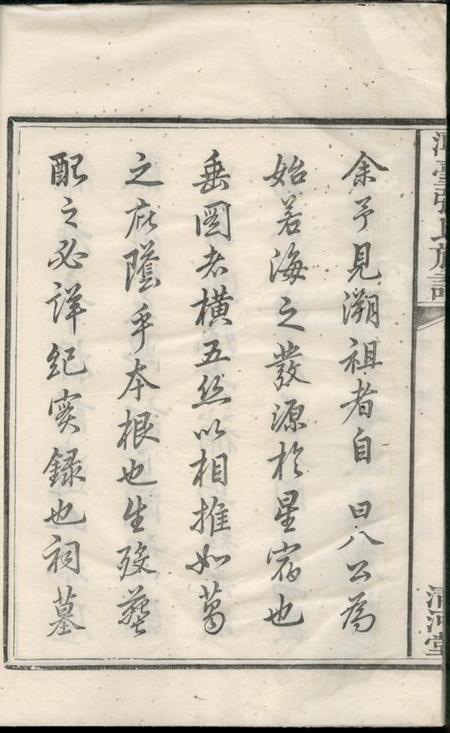 張氏族譜
清河堂
余予見溯祖者自 曰八公為
始若海之發源於星宿也
垂圖者橫五丝以相推如葛
之庇蔭乎本根也生歿葬
配之必詳紀实録也祠墓